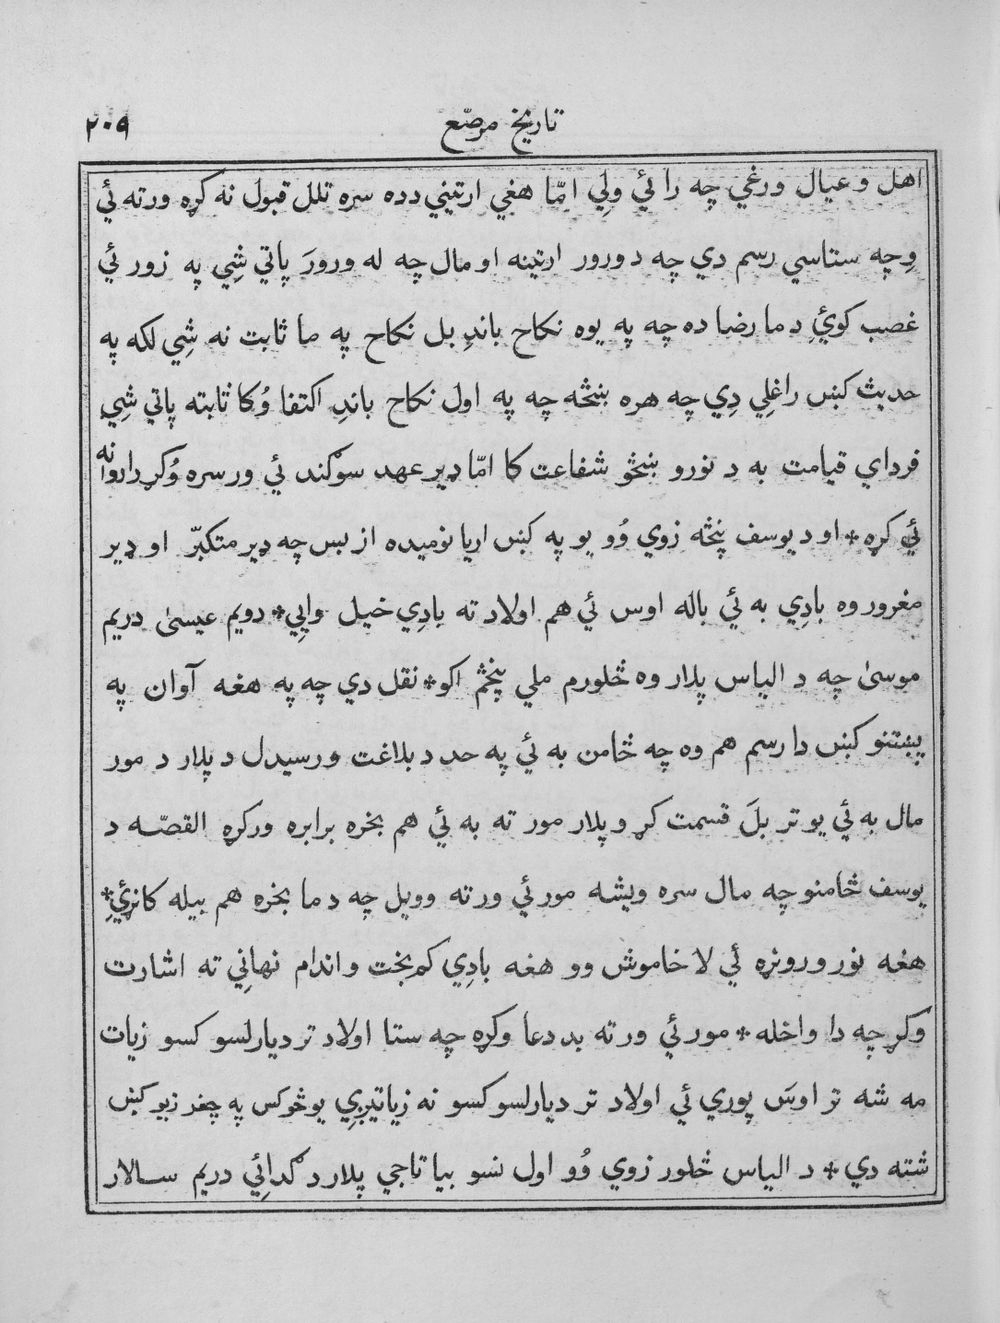 تاریخ مرصّع ۲۰۹
اهل و عیال ورغي چه را ئي ولِي امّا هغي ارتيني دده سره تلل قبول نه کړه ورته ئي
وِچه ستاسي رسم دي چه د ورور ارتينه او مال چه له ورورَ پاتي شِي په زور ئي
غصب کوئِ دِ ما رضا ده چه په يوه نکاح باندِ بل نکاح په ما ثابت نه شِي لکه په
حديث کښ راغلِي دِي چه هره ښځه چه په اول نکاح باندِ اکتفا وُکا ثابته پاتي شِي
فرداي قيامت به د نورو ښځو شفاعت کا امّا ډير عهد سوکند ئي ورسره وُکړ را روانه
ئي کړه * او د يوسف پنځه زوي وُو يو په کښ اريا نوميده از بس چه ډير متکبّر او ډير
مغرور وه بادِي به ئي باله اوس ئي هم اولاد ته بادِي خيل وايِي * دويم عيسیٰ دريم
موسیٰ چه د الياس پلار وه څلورم ملي پنځم اکو * نقل دي چه په هغه آوان په
پښتنو کښ دا رسم هم وه چه څامن به ئي په حد د بلاغت ورسيدل د پلار د مور
مال به ئي يو تر بلَ قسمت کړ و پلار مور ته به ئي هم بخره برابره ورکړه القصّه د
يوسف څامنو چه مال سره ويشه مور ئي ورته وويل چه د ما بخره هم بيله کانړئِ *
هغه نور ورونړه ئي لا خاموش وو هغه بادِي کم بخت و اندام نهانِي ته اشارت
وکړ چه دا واخله * مور ئي ورته بد دعا وکړه چه ستا اولاد تر ديارلسو کسو زيات
مه شه تر اوسَ پوري ئي اولاد تر ديارلسو کسو نه زياتيږي يو څوکس په چغر زيو کښ
شته دي * د الياس څلور زوي وُو اول نسو بيا تاجي پلار د کدائِي دريم سالار